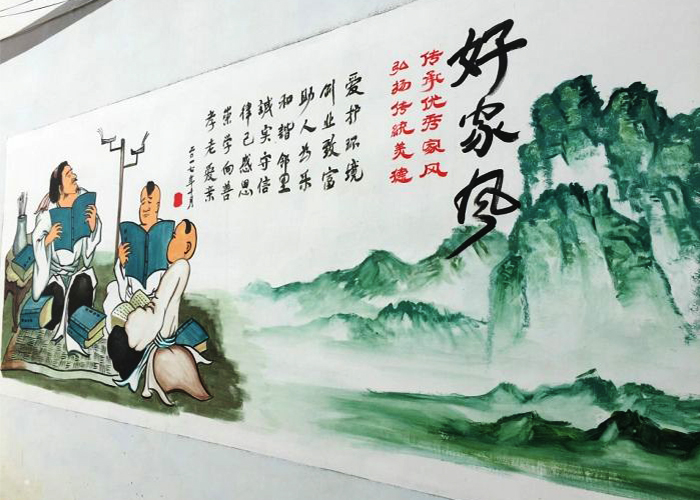 好家风
传承优秀家风
弘扬传统美德
爱护环境
创业致富
助人为乐
和睦邻里
诚实守信
律己感恩
崇学向善
孝老爱亲
二〇一七年十月